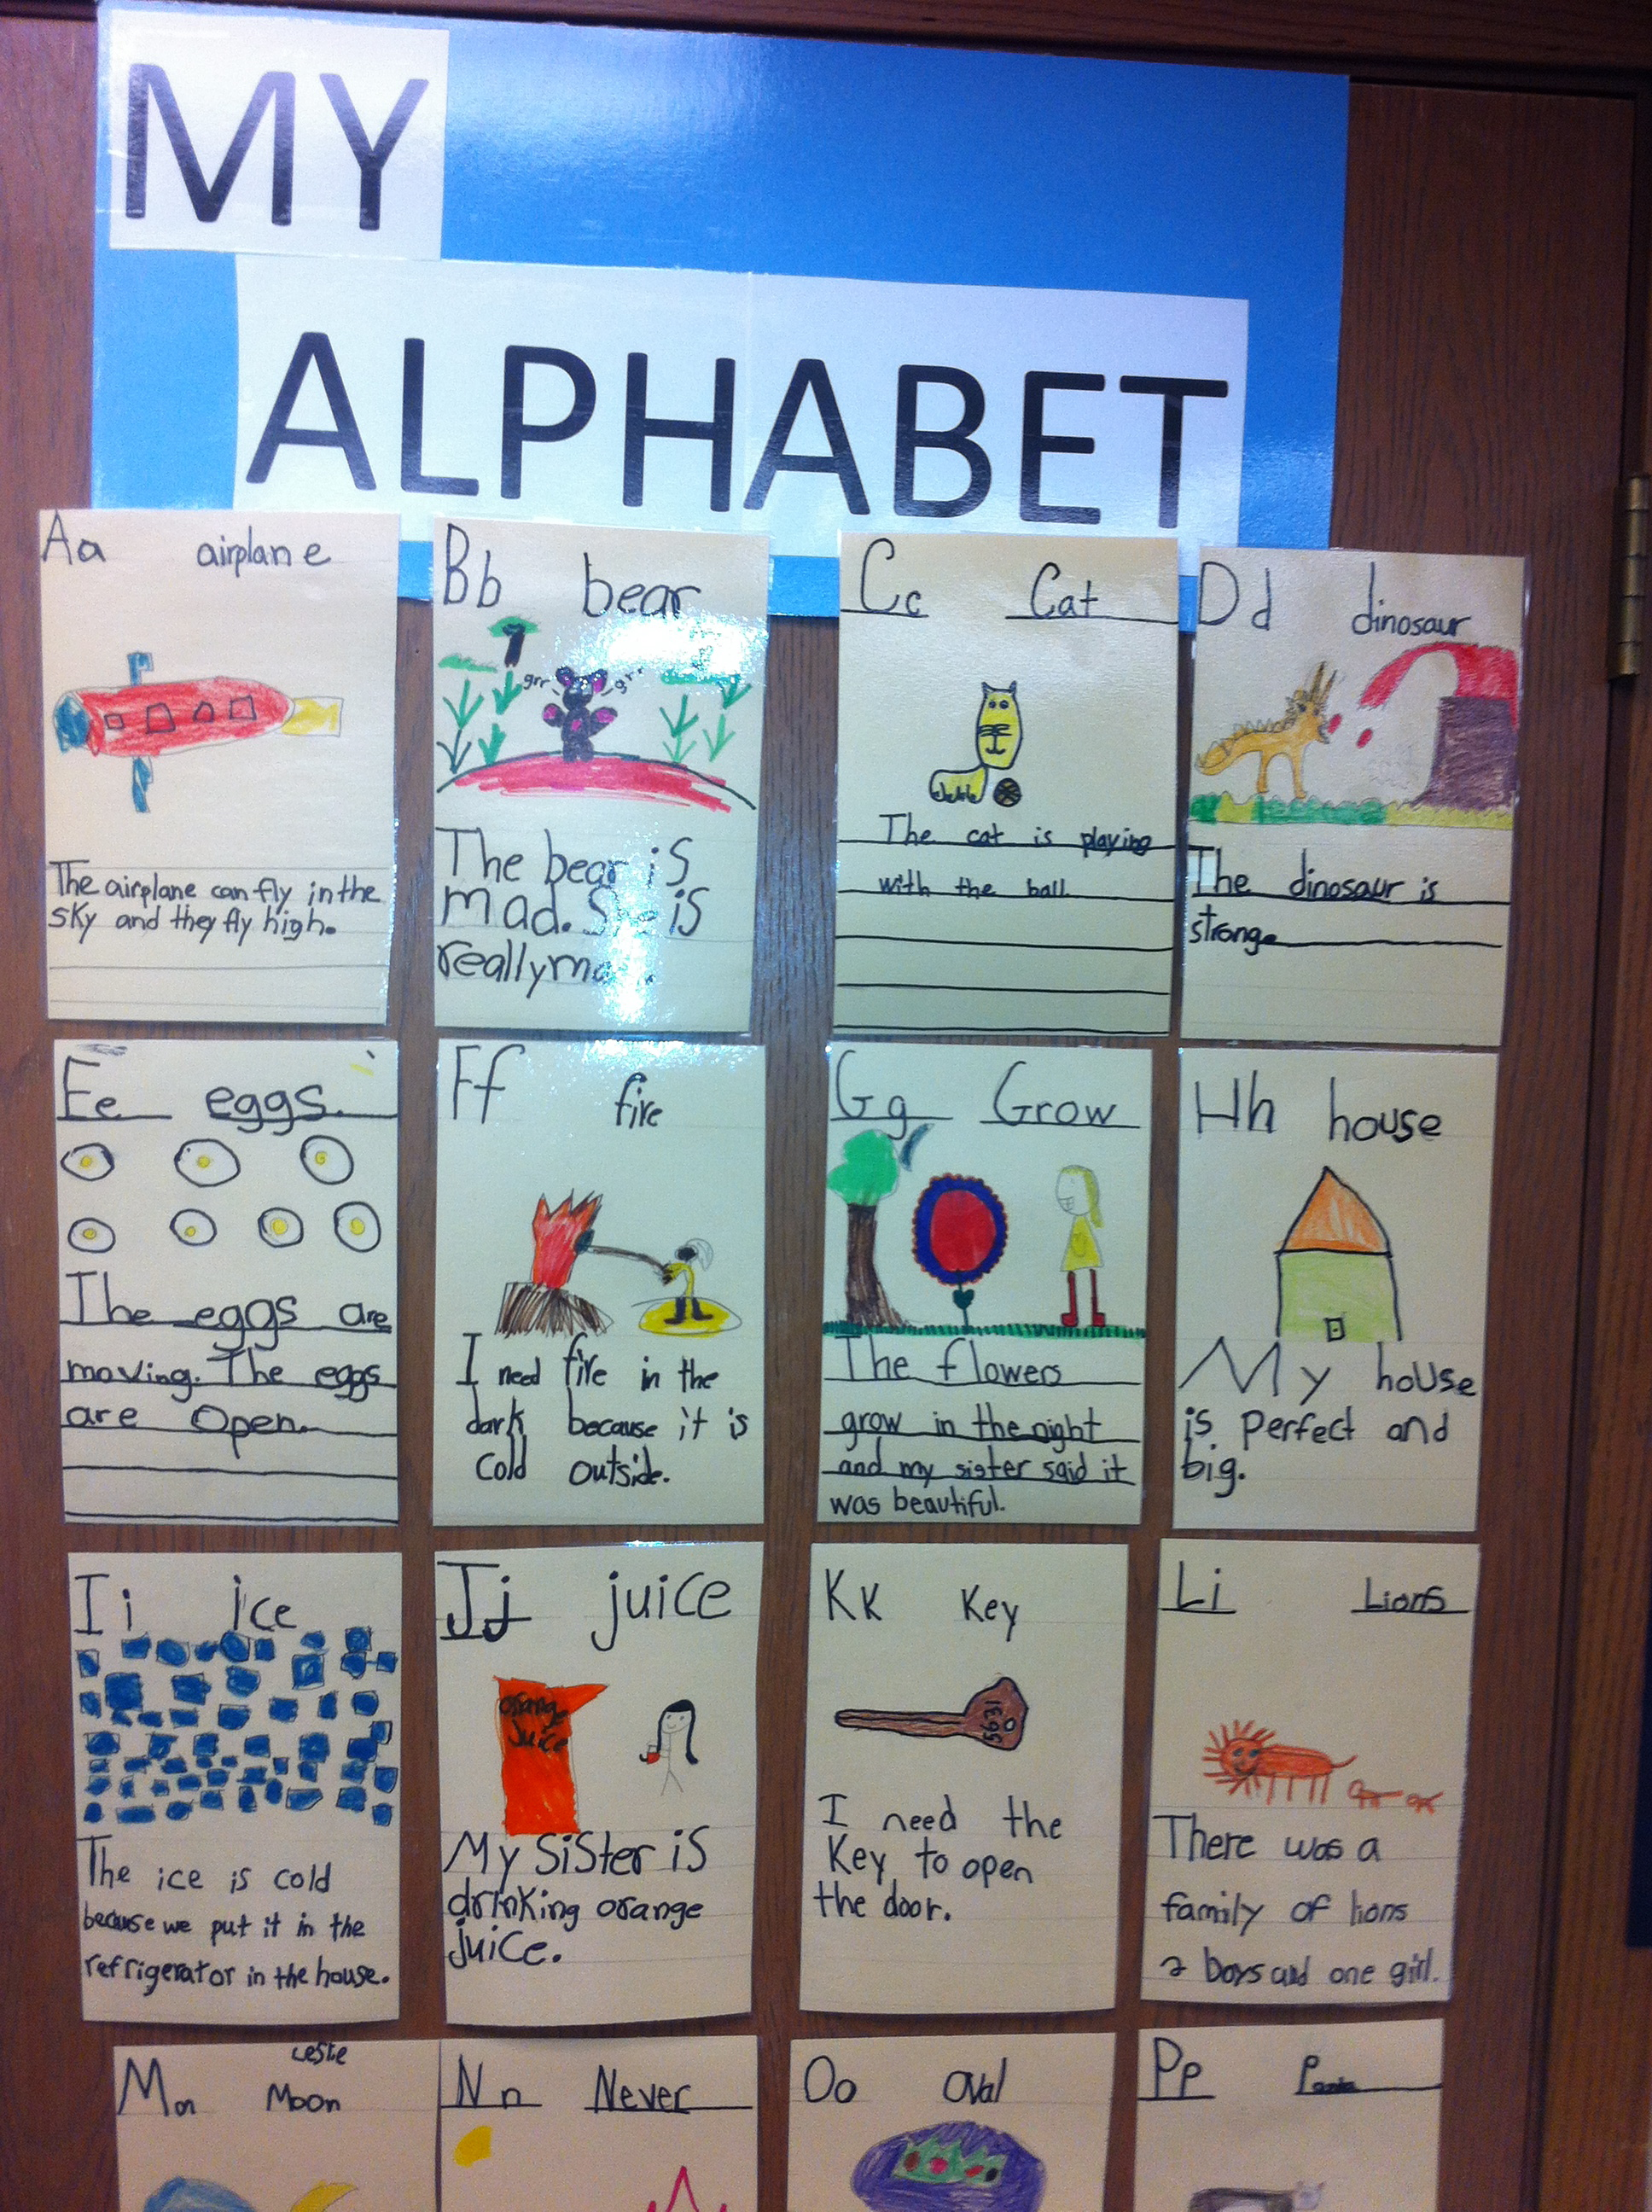 MY
ALPHABET
Aa airplane
The airplane can fly in the
sky and they fly high.
Bb bear
grr grr
The bear is
mad. She is
really
Cc Cat
The cat is playing
with the ball.
Dd dinosaur
The dinosaur is
strong
Ee eggs.
The eggs are
moving. The eggs
are Open.
Ff fire
I need fire in the
dark because it is
cold outside.
Gg Grow
The flowers
grow in the night
and my sister said it
was beautiful.
Hh house
My house
is perfect and
big.
Ii ice
The ice is cold
because we put it in the
refrigerator in the house.
Jj juice
orange
juice
My sister is
drinking orange
juice.
Kk Key
1695
I need the
Key to open
the door.
Li Lions
There was a
family of lions
2 boys and one girl.
Leslie
Mm Moon
Nn Never
Oo Oval
Pp